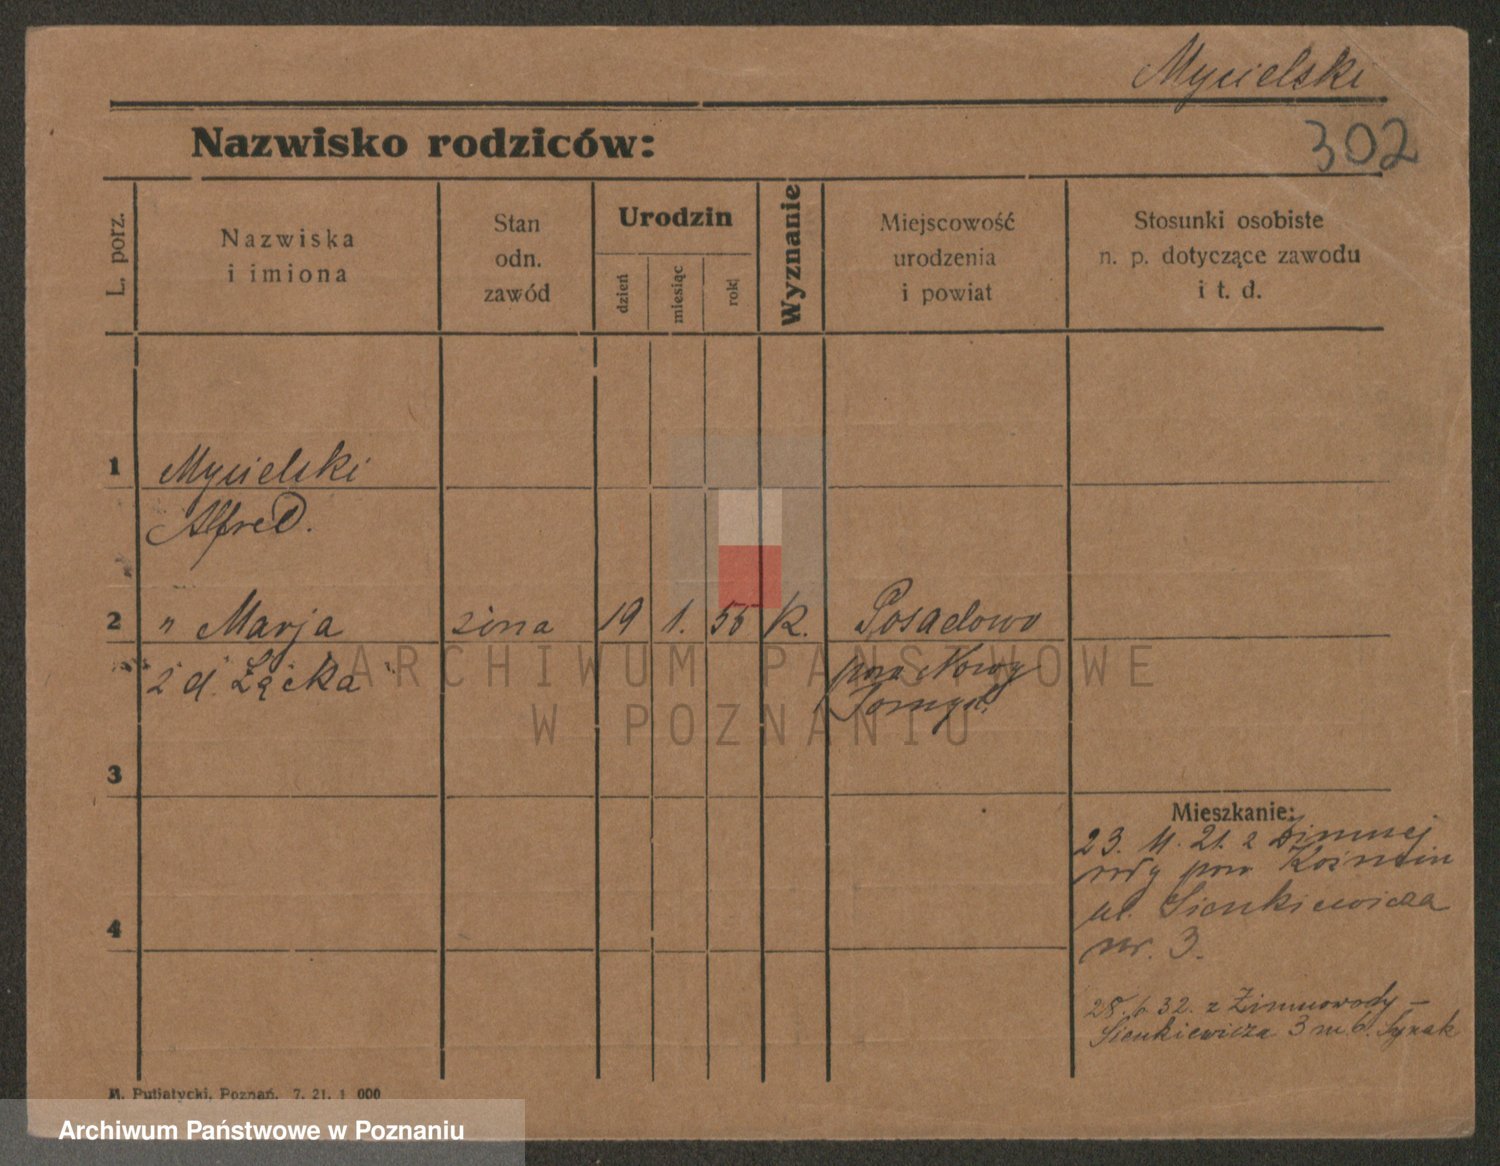 Mycielski
302
Nazwisko rodziców:
L. porz.
Nazwiska
i imiona
Stan
odn.
zawód
Urodzin
dzień
miesiąc
rok
Wyznanie
Miejscowość
urodzenia
i powiat
Stosunki osobiste
n. p. dotyczące zawodu
i t. d.
1 Mycielski
Alfred.
2 " Marja żona 19 1. 55 K. Posadowo
z d. Łącka pow Nowy
Tomyśl.
3
4
Mieszkanie:
23. 11. 21. z Zimnej
wody pow Koźmin
ul. Sienkiewicza
nr. 3.
28. 6 32. z Zimnowody –
Sienkiewicza 3 m. 6.
M. Putiatycki, Poznań. 7. 21. 1 000
ARCHIWUM PAŃSTWOWE
W POZNANIU
Archiwum Państwowe w Poznaniu